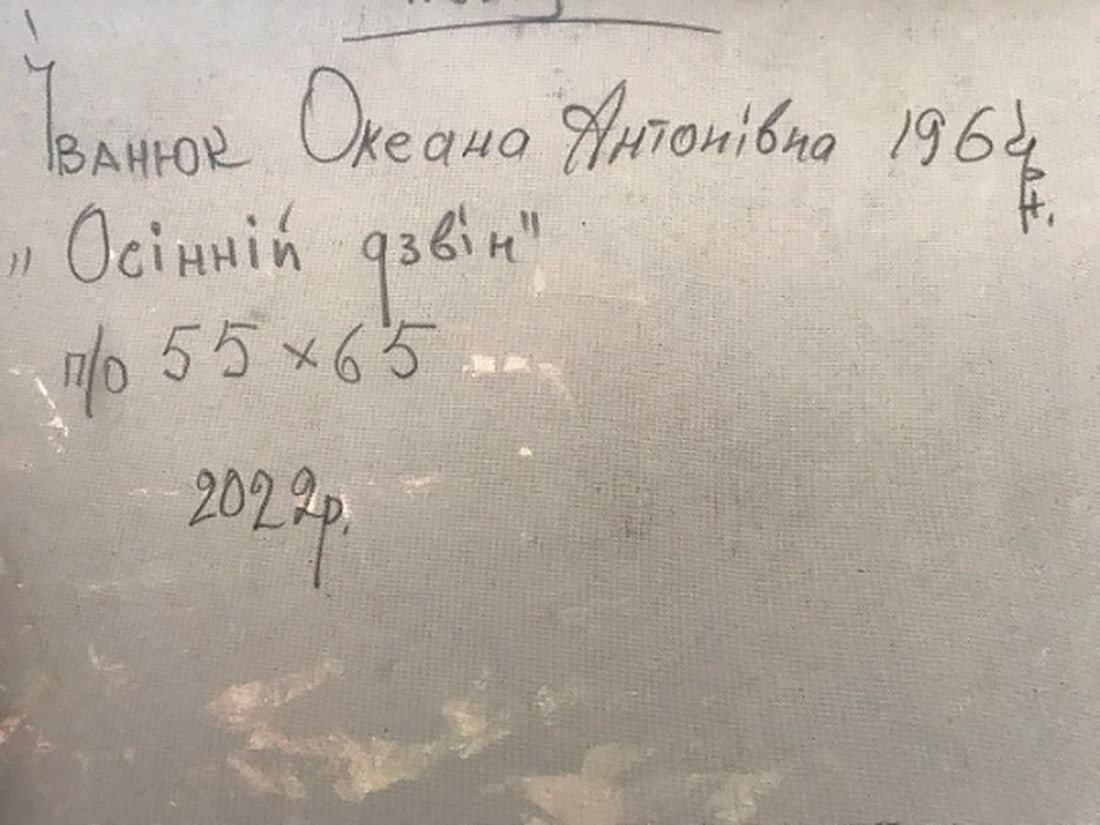 Іванюк Океана Антонівна 1964 р.н.
„Осінній дзвін"
п/о 55×65
2022р.